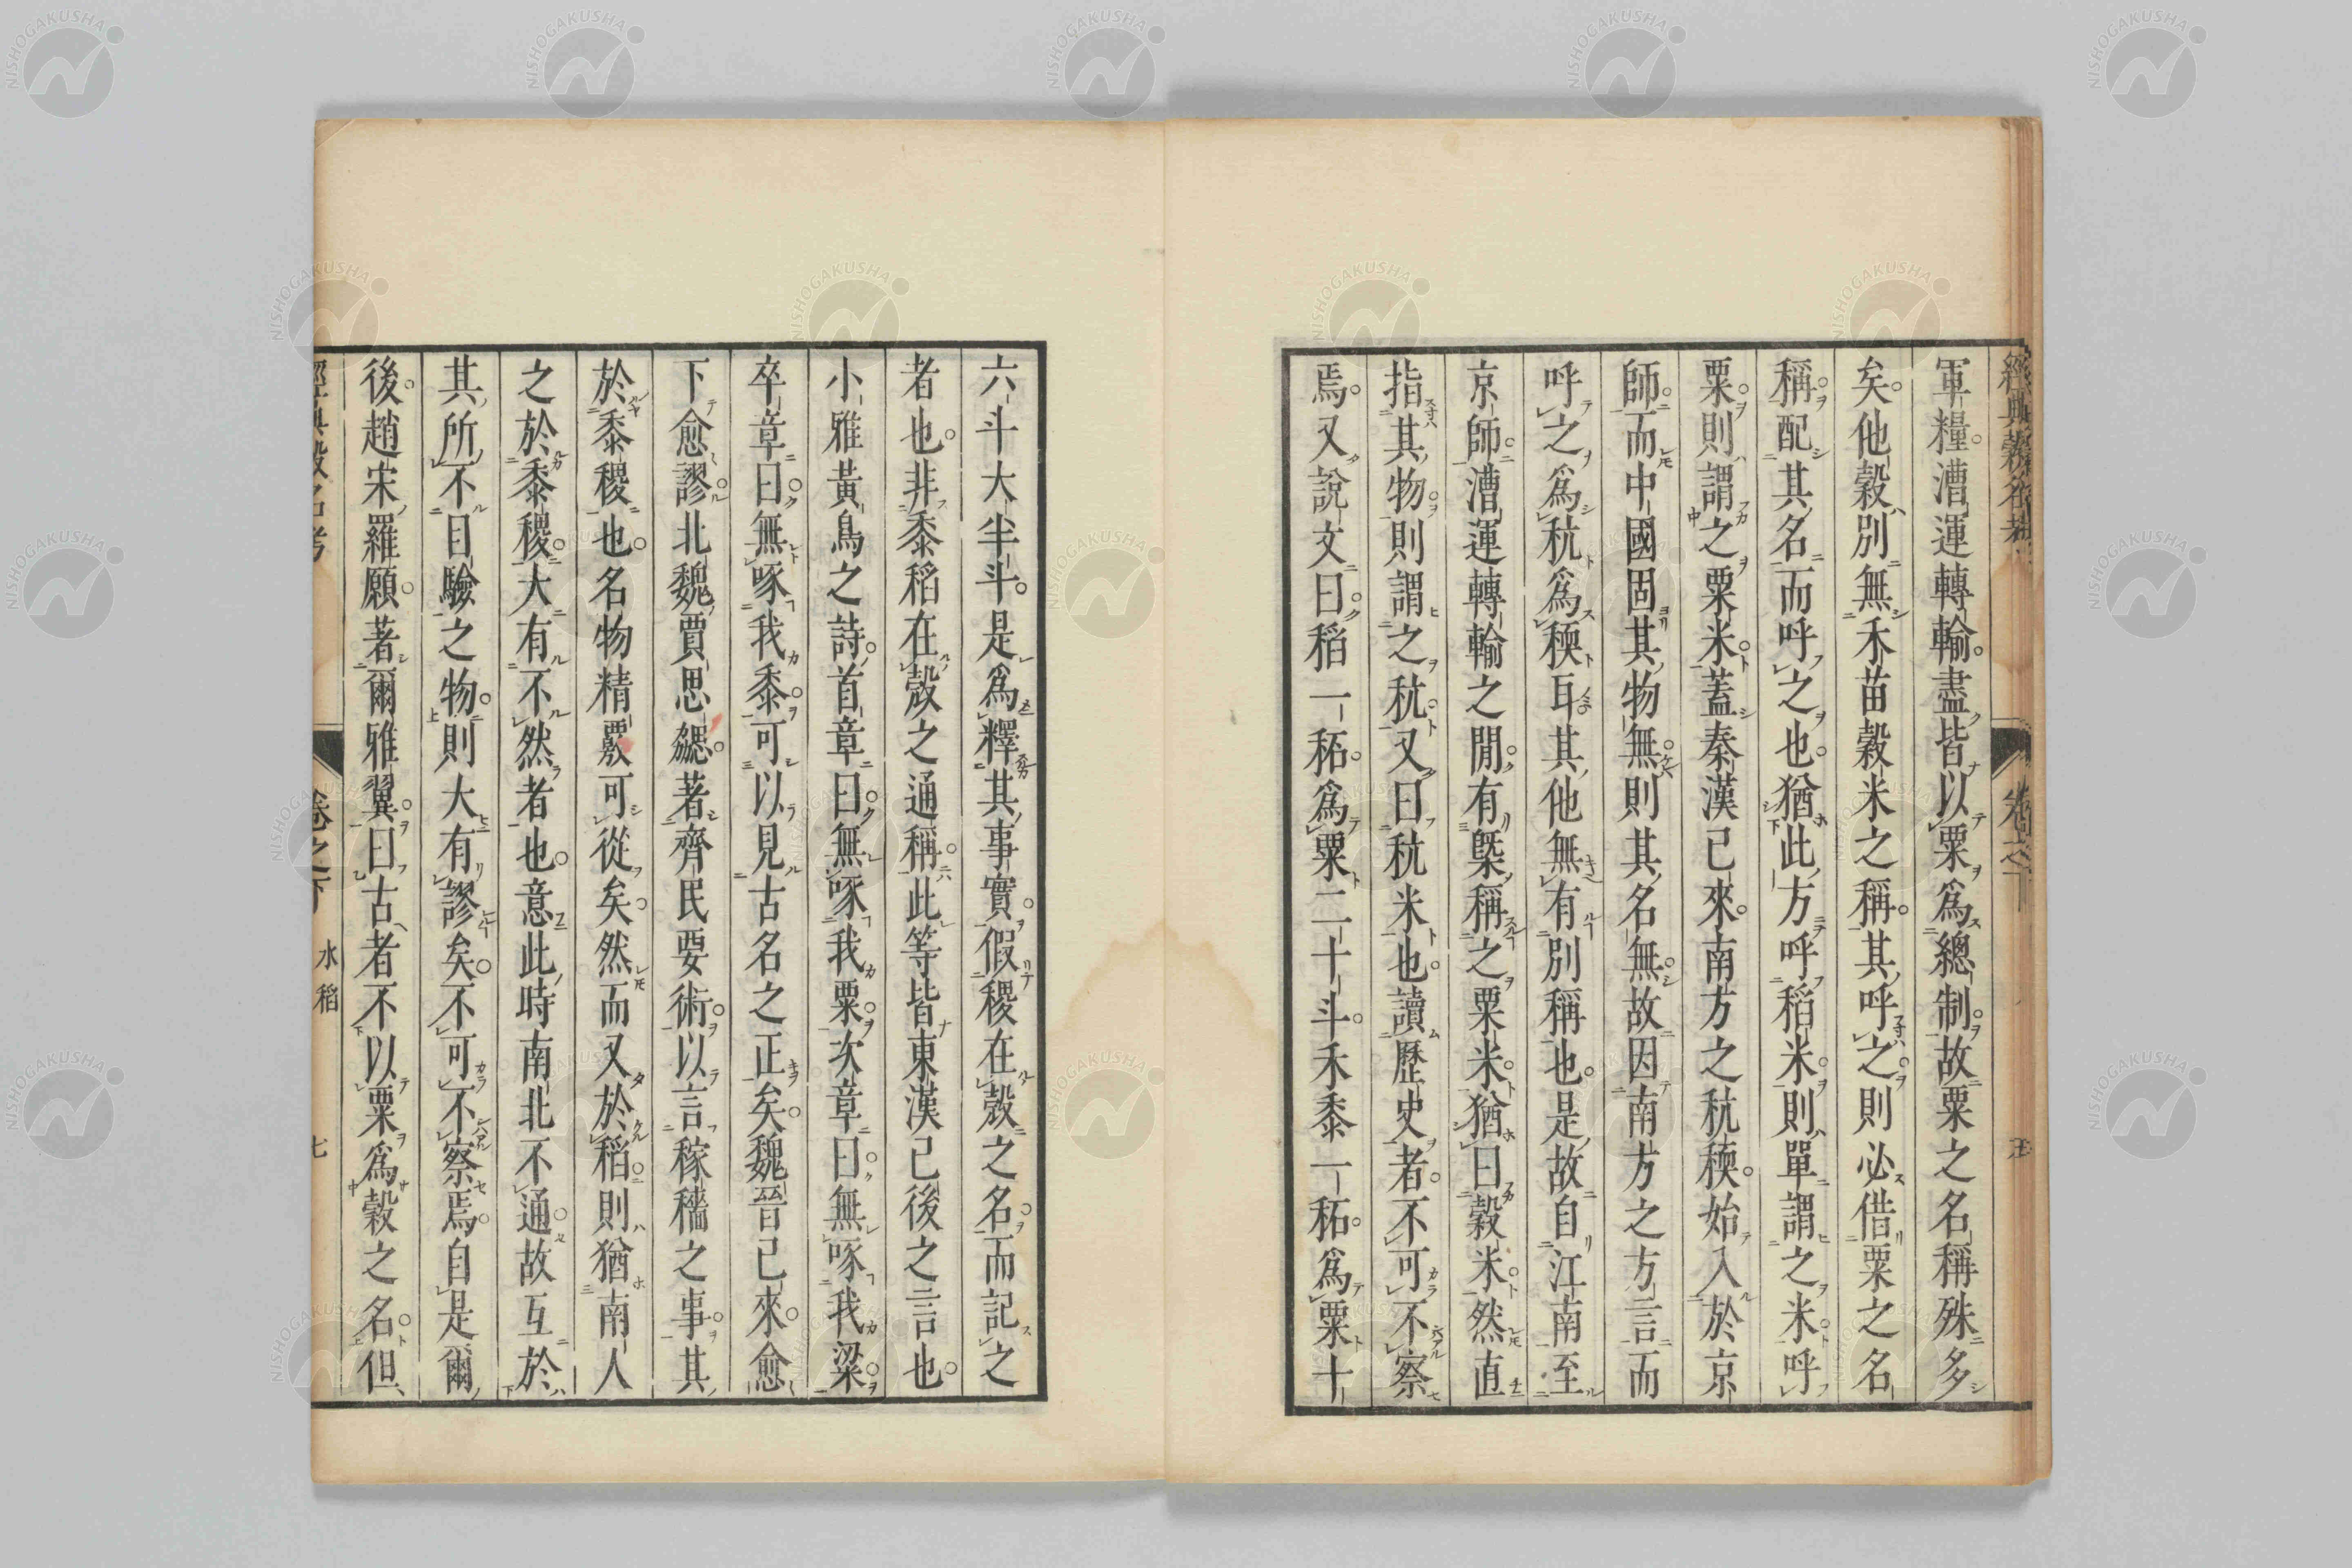 經典穀名考
卷之下
軍糧漕運轉輸盡皆以粟爲總制故粟之名稱殊多
矣他穀別無禾苗穀米之稱其呼之則必借粟之名
稱配其名而呼之也猶此方呼稻米則單謂之米呼
粟則謂之粟米蓋秦漢已來南方之秔稉始入於京
師而中國固其物無則其名無故因南方之方言而
呼之爲秔爲稉耳其他無有別稱也是故自江南至
京師漕運轉輸之間有槩稱之粟米猶曰穀米然直
指其物則謂之秔又曰秔米也讀歷史者不可不察
焉又說文曰稻一䄷爲粟二十斗禾黍一䄷爲粟十
六斗大半斗是爲釋其事實假稷在穀之名而記之
者也非黍稻在穀之通稱此等皆東漢已後之言也
小雅黃鳥之詩首章曰無啄我粟次章曰無啄我粱
卒章曰無啄我黍可以見古名之正矣魏晉已來愈
下愈謬北魏賈思勰著齊民要術以言稼穡之事其
於黍稷也名物精覈可從矣然而又於稻則猶南人
之於黍稷大有不然者也意此時南北不通故互於
其所不目驗之物則大有謬矣不可不察焉自是爾
後趙宋羅願著爾雅翼曰古者不以粟爲穀之名但
經典穀名考
卷之下
水稻
七
NISHOGAKUSHA